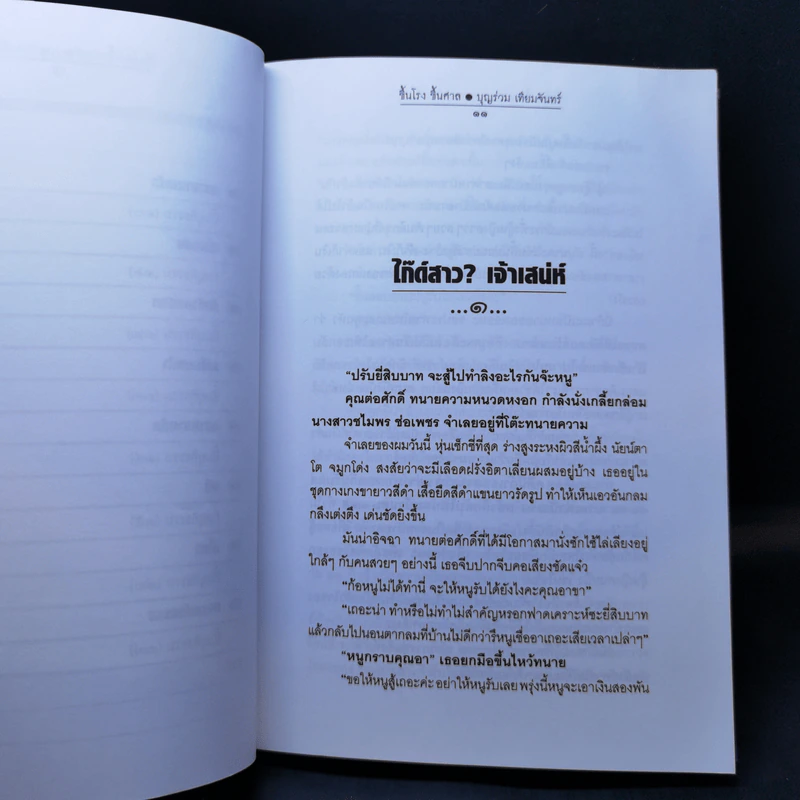 ขึ้นโรง ขึ้นศาล ● บุญร่วม เทียมจันทร์
๑๑
ไก๊ด์สาว? เจ้าเสน่ห์
...๑...
“ปรับยี่สิบบาท จะสู้ไปทำลิงอะไรกันจ๊ะหนู”
คุณต่อศักดิ์ ทนายความหนวดหงอก กำลังนั่งเกลี้ยกล่อม
นางสาวชไมพร ช่อเพชร จำเลยอยู่ที่โต๊ะทนายความ
จำเลยของผมวันนี้ หุ่นเซ็กซี่ที่สุด ร่างสูงระหงผิวสีน้ำผึ้ง นัยน์ตา
โต จมูกโด่ง สงสัยว่าจะมีเลือดฝรั่งอิตาเลี่ยนผสมอยู่บ้าง เธออยู่ใน
ชุดกางเกงขายาวสีดำ เสื้อยืดสีดำแขนยาวรัดรูป ทำให้เห็นเอวอันกลม
กลึงเต่งตึง เด่นชัดยิ่งขึ้น
มันน่าอิจฉา ทนายต่อศักดิ์ที่ได้มีโอกาสมานั่งซักไซ้ไล่เลียงอยู่
ใกล้ๆ กับคนสวยๆ อย่างนี้ เธอจีบปากจีบคอเสียงชัดแจ๋ว
“ก้อหนูไม่ได้ทำนี่ จะให้หนูรับได้ยังไงคะคุณอาขา”
“เถอะน่า ทำหรือไม่ทำไม่สำคัญหรอกฟาดเคราะห์ซะยี่สิบบาท
แล้วกลับไปนอนตากลมที่บ้านไม่ดีกว่ารึหนูเชื่ออาเถอะเสียเวลาเปล่าๆ”
“หนูกราบคุณอา” เธอยกมือขึ้นไหว้ทนาย
“ขอให้หนูสู้เถอะค่ะ อย่าให้หนูรับเลย พรุ่งนี้หนูจะเอาเงินสองพัน